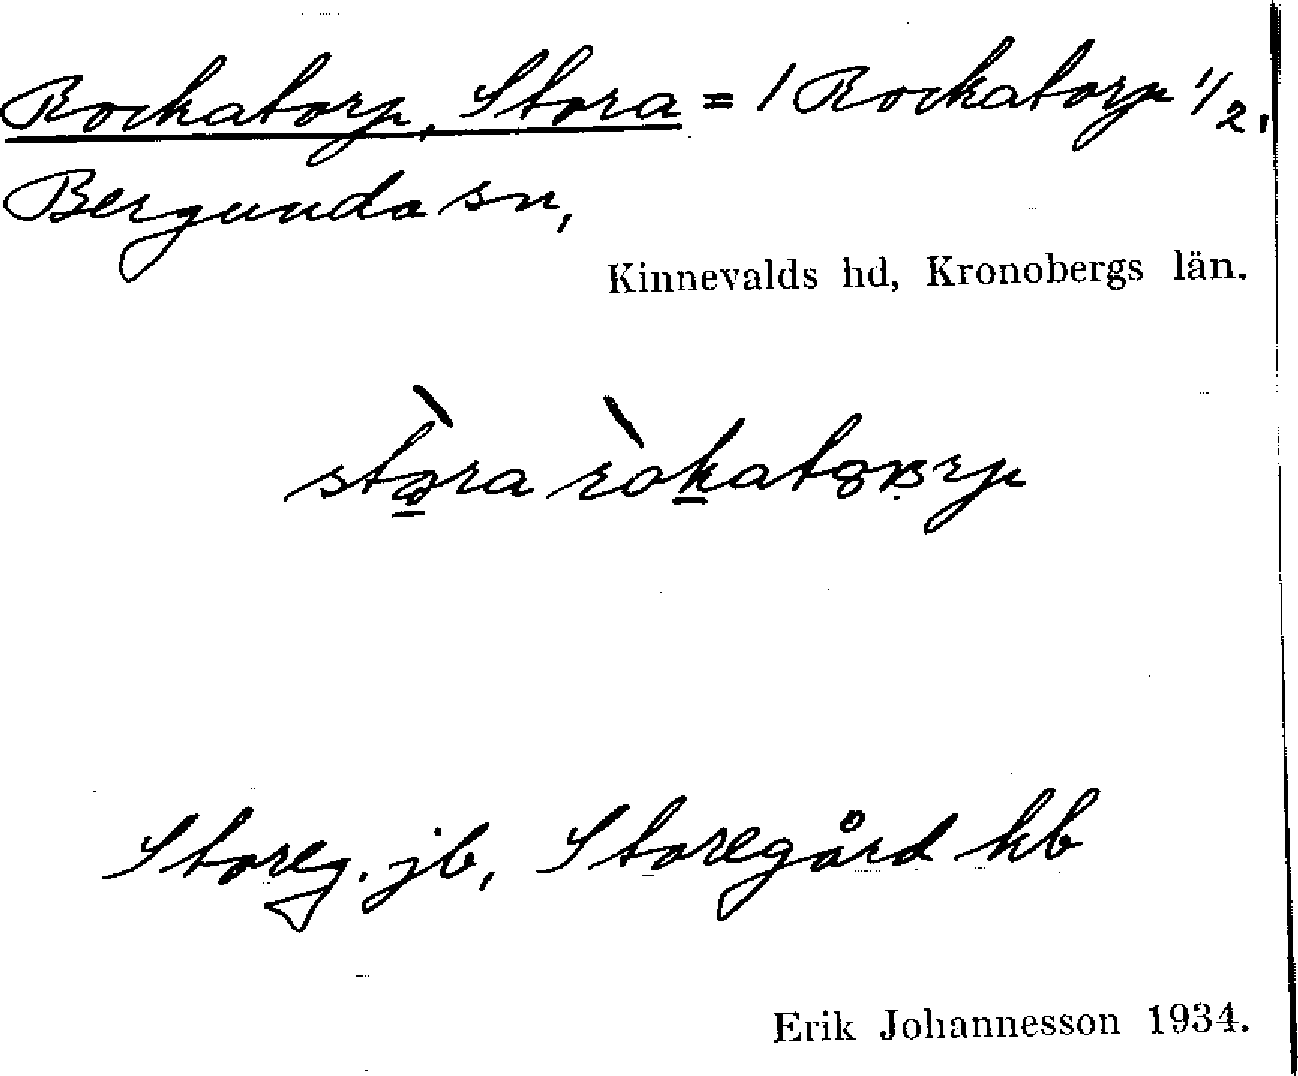 Rockatorp, Stora = / Rockatorp 1/2,
Bergunda sn,
Kinnevalds hd, Kronobergs län.
Storeg. jb, Storegård kb
Erik Johannesson 1934.